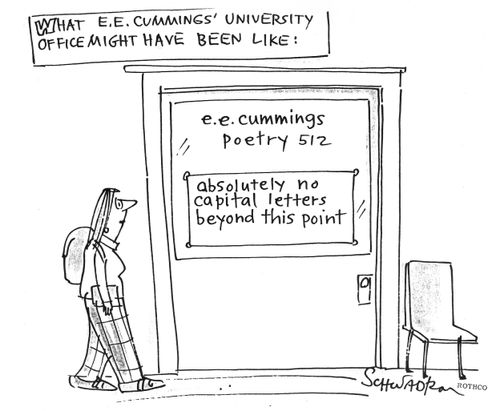 WHAT E.E. CUMMINGS' UNIVERSITY
OFFICE MIGHT HAVE BEEN LIKE:
e.e. cummings
Poetry 512
absolutely no
capital letters
beyond this point
SCHWADRON
ROTHCO